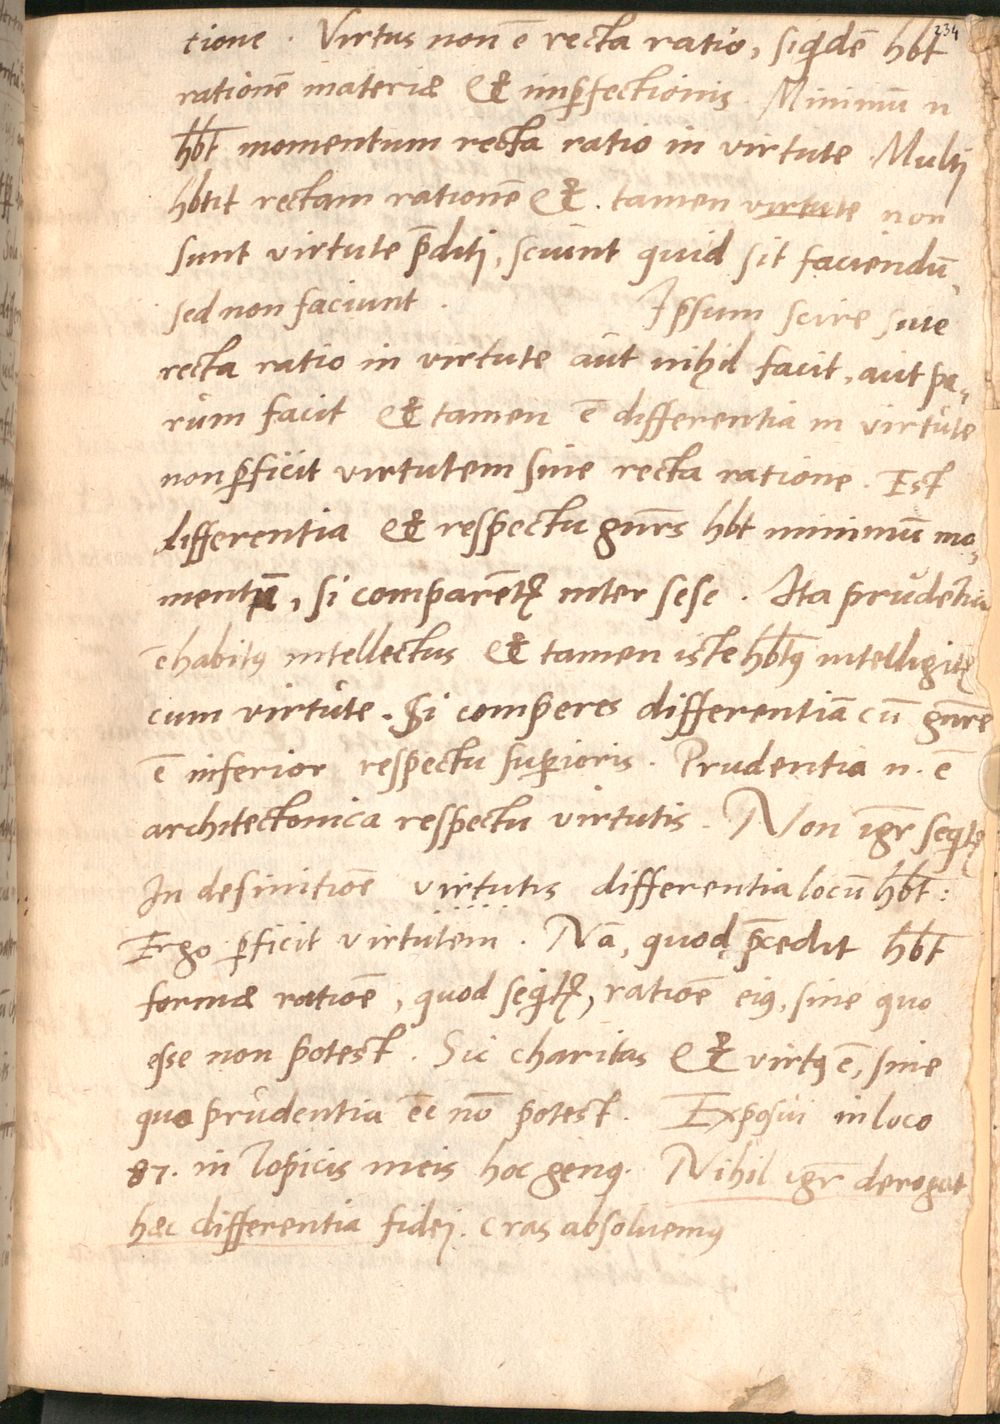 234
tione . Virtus non ē recta ratio, siq̃dē hb̄t
rationē materiæ & imp̄fectionis. Minimū n
hb̄t momentum recta ratio in virtute. Multi
hb̄t rectam rationē &. tamen virtute non
sunt virtute p̄diti, sciunt quid sit faciendū,
sed non faciunt . Ipsum scire siue
recta ratio in virtute aut nihil facit, aut pa-
rum facit & tamen ē differentia in virtute
non p̄ficit virtutem sine recta ratione. Est
differentia & respectu gn̄rs hb̄t minimū mo-
mentū, si comparēt᷑ inter sese . Ita prudētia
ē habitꝰ intellectus & tamen iste hb̄tꝰ intelligit᷑
cum virtute. Si comperes differentiā cū gn̄re
ē inferior respectu sup̄ioris. Prudentia n. ē
architectonica respectu virtutis. Non igr̄ seq̃t᷑
In definitiōe virtutis differentia locū hb̄t:
Ergo p̄ficit virtutem. Nā, quod p̄cedit hb̄t
formæ ratiōē, quod seq̃t᷑, ratiōē eiꝰ, sine quo
esse non potest. Sic charitas & virtꝰ ē, sine
quo prudentia ēē nō potest. Exposui in loco
87. in Topicis meis hoc genꝰ. Nihil igr̄ derogat
hæc differentia fidei. cras absoluemꝰ